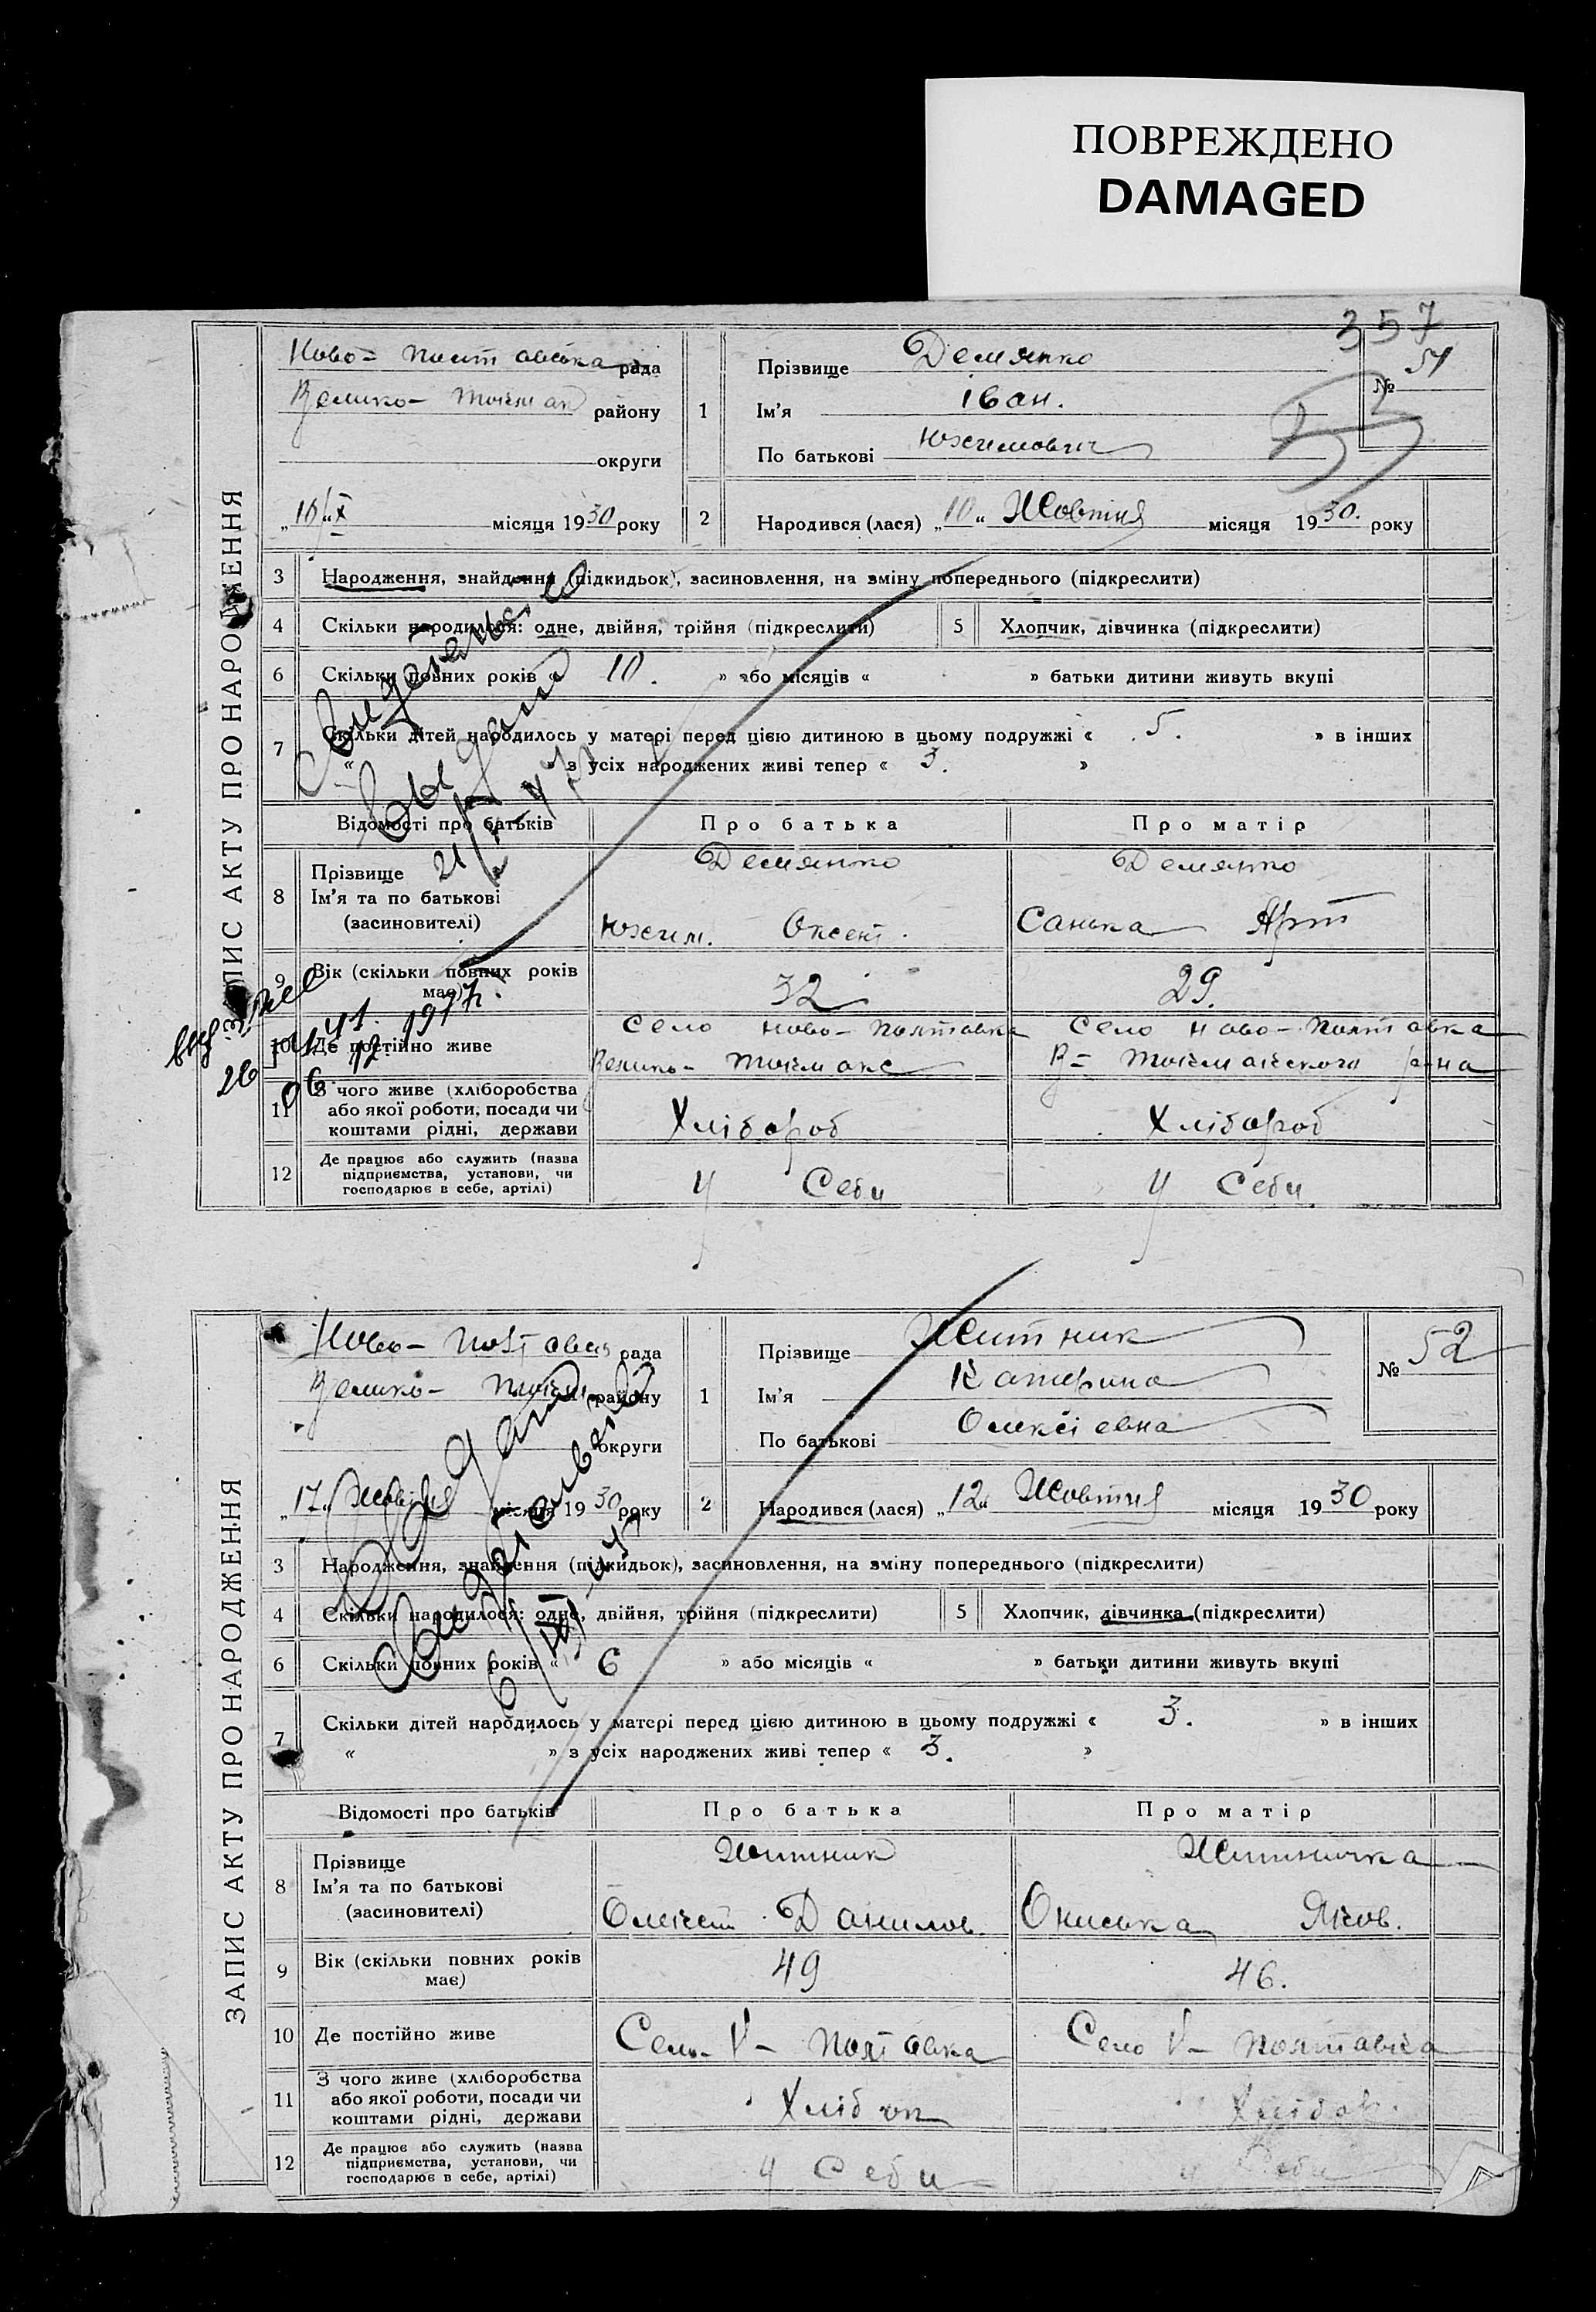 ПОВРЕЖДЕНО
DAMAGED
357
ЗАПИС АКТУ ПРО НАРОДЖЕННЯ
рада
Велико- Токмак району
округи
1
Прізвище Демянко
Ім'я Іван.
По батькові Юхимович
№ 51
„10/X місяця 1930 року
2
Народився (лася) „10“ Жовтня місяця 1930. року
3 Народження, знайдення (підкидьок), засиновлення, на зміну попереднього (підкреслити)
4 Скільки народилося: одне, двійня, трійня (підкреслити) 5 Хлопчик, дівчинка (підкреслити)
6 Скільки повних років « 10. » або місяців « » батьки дитини живуть вкупі
7 Скільки дітей народилось у матері перед цією дитиною в цьому подружжі « 5. » в інших
« » з усіх народжених живі тепер « 3. »
Відомості про батьків Про батька Про матір
8 Прізвище Демянко Демянко
Ім'я та по батькові
(засиновителі) Юхим. Оксент. Санька Арт
9 Вік (скільки повних років має) 32 29.
10 Де постійно живе Село Ново-Полтавка Село Ново-Полтавка
Велико- Токмакс В= Токмакського р-на
11 З чого живе (хліборобства
або якої роботи, посади чи
коштами рідні, держави Хлібороб Хлібороб
12 Де працює або служить (назва
підприємства, установи, чи
господарює в себе, артілі) У Себи У Себи
Свидетельство
выдано
ЗАПИС АКТУ ПРО НАРОДЖЕННЯ
рада
Велико- району
округи
1
Прізвище Житник
Ім'я Катерина
По батькові Олексіевна
№ 52
„17“ Жовтня місяця 1930 року
2
Народився (лася) „12“ Жовтня місяця 1930 року
3 Народження, знайдення (підкидьок), засиновлення, на зміну попереднього (підкреслити)
4 Скільки народилося: одне, двійня, трійня (підкреслити) 5 Хлопчик, дівчинка (підкреслити)
6 Скільки повних років « 6 » або місяців « » батьки дитини живуть вкупі
7 Скільки дітей народилось у матері перед цією дитиною в цьому подружжі « 3. » в інших
« » з усіх народжених живі тепер « 3. »
Відомості про батьків Про батька Про матір
8 Прізвище Житник Житничка
Ім'я та по батькові
(засиновителі) Данилов. Ониська Яков.
9 Вік (скільки повних років має) 49 46.
10 Де постійно живе Село V- Полтавка Село V- Полтавка
11 З чого живе (хліборобства
або якої роботи, посади чи
коштами рідні, держави
12 Де працює або служить (назва
підприємства, установи, чи
господарює в себе, артілі) у Себи у Себи
Выдано